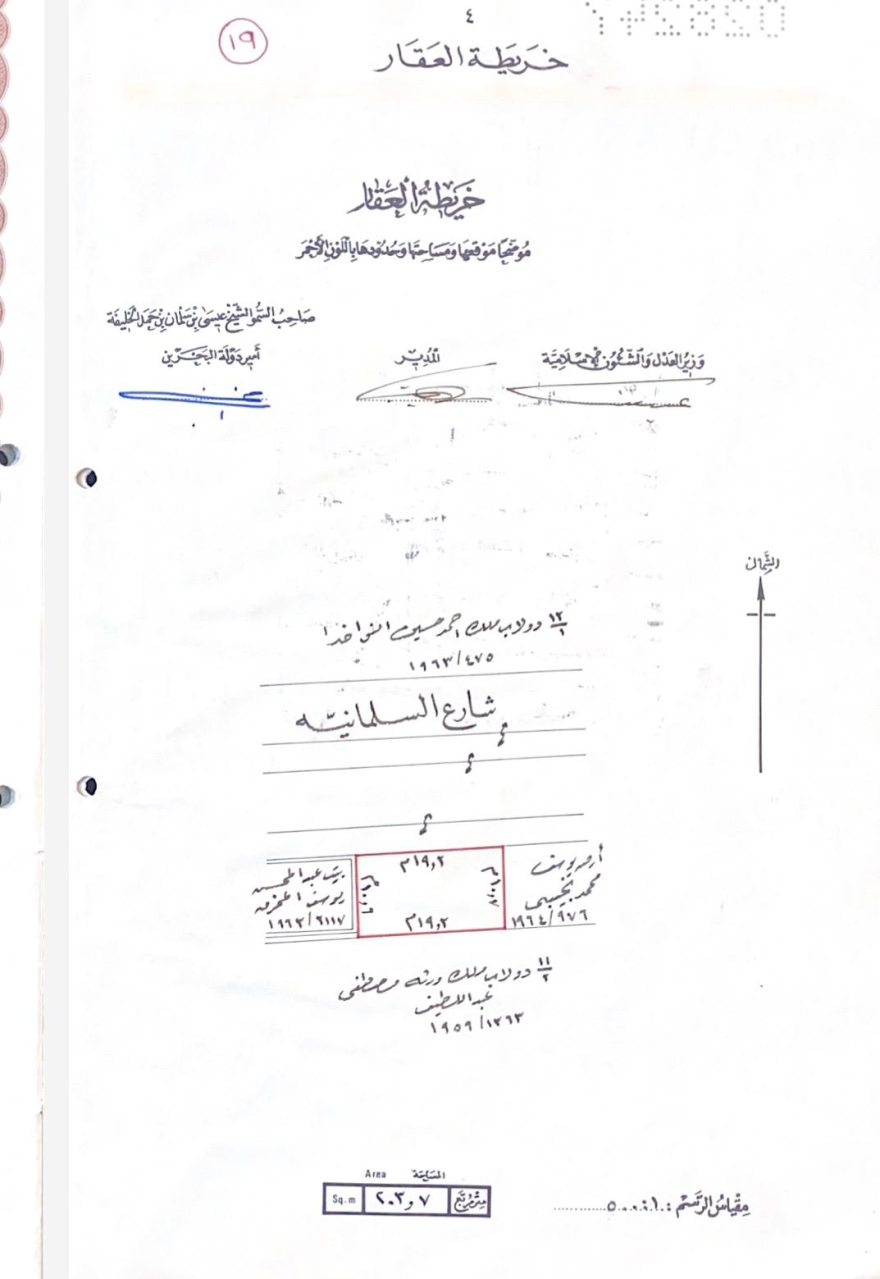 ٤
١٩
خريطة العقار
خريطة العقار
موضحا موقعها ومساحتها وحدودها باللون الأحمر
صاحب السمو الشيخ عيسى بن سلمان بن حمد الخليفة
أمير دولة البحرين
المدير
وزير العدل والشئون الإسلامية
الشمال
١٢/١ دولاب ملك احمد حسين النواخذا
١٩٦٣/٤٧٥
شارع السلمانيه
١٩,٢م
١٠,٦م
١٠,٧م
١٩,٢م
أرض يوسف
محمد نجيبي
١٩٦٤/٩٧٦
بيت عبد المحسن
يوسف المخرق
١٩٦٣/٢١١٧
١١/٢ دولاب ملك ورثه مصطفى
عبداللطيف
١٩٥٩/١٢٦٣
المساحة Area
متر مربع ٢٠٣,٧ Sq.m
مقياس الرسم: ١:٥٠٠